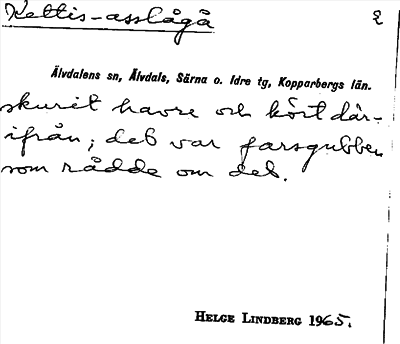 Kettis-asslågå
2
Älvdalens sn, Älvdals, Särna o. Idre tg, Kopparbergs län.
skurit havre och kört där-
ifrån; det var farsgubben
som rådde om det.
HELGE LINDBERG 1965.